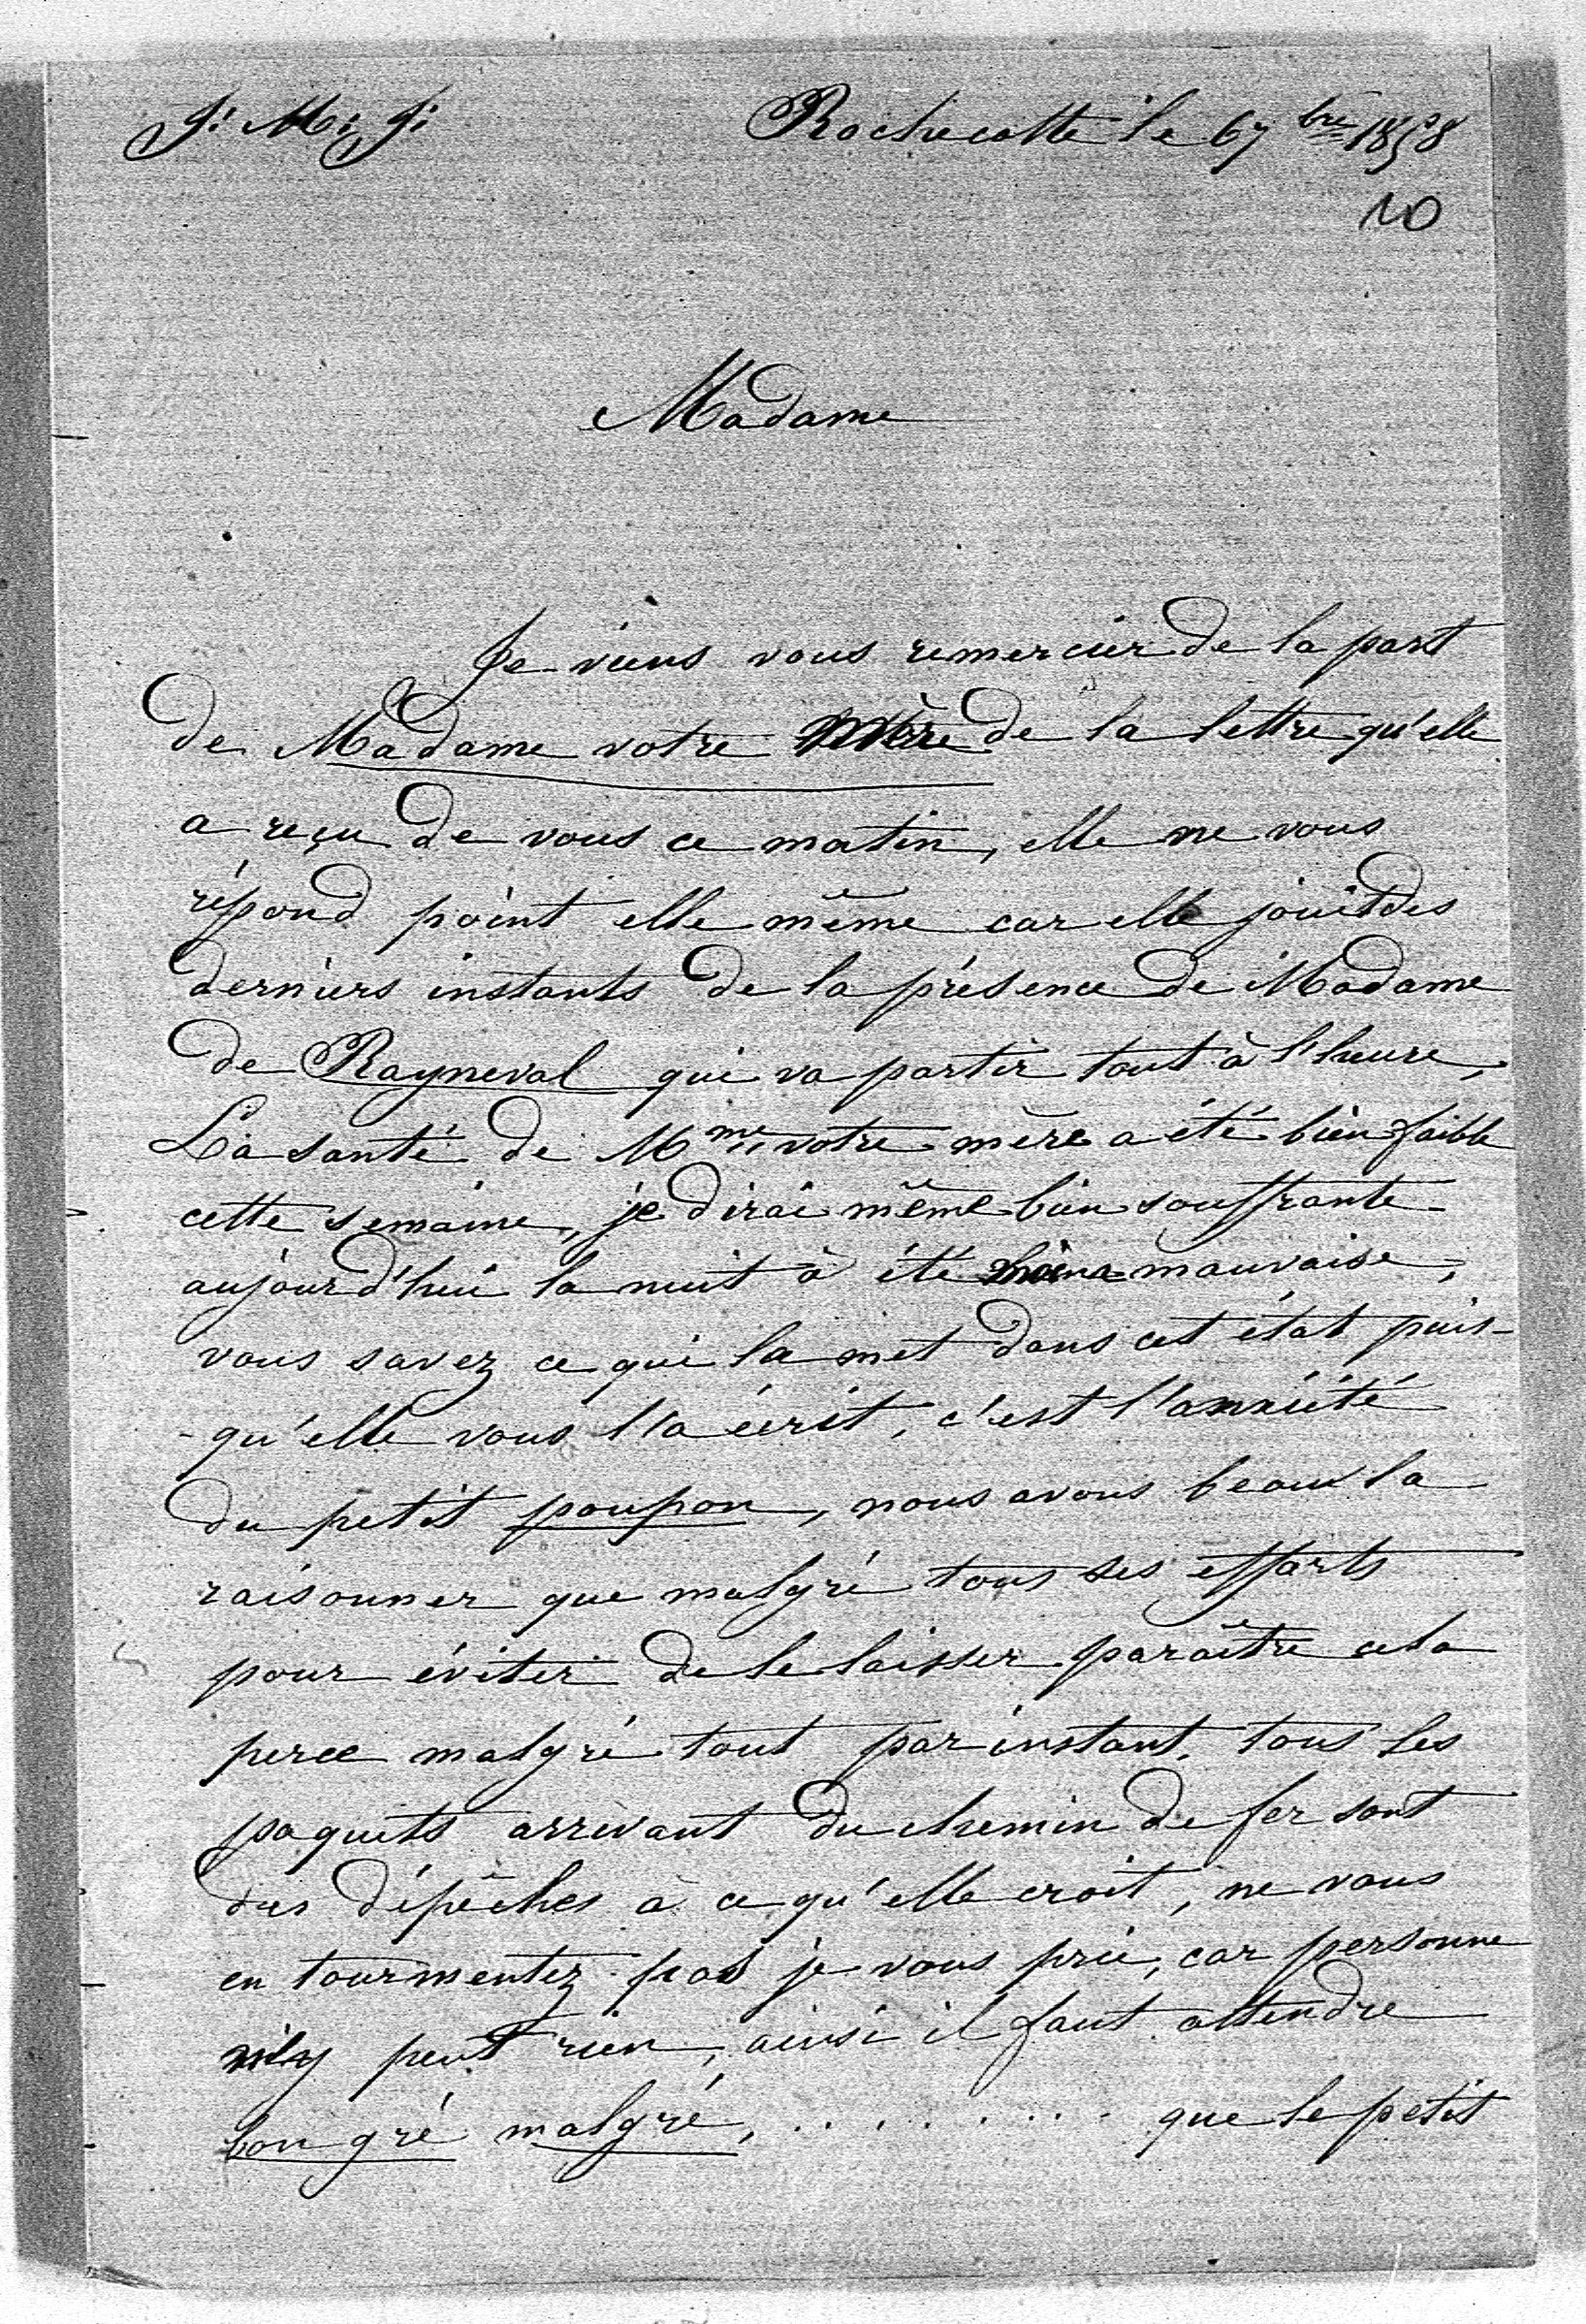 J: M: J: Rochecotte le 6 7bre 1858
10
Madame
Je viens vous remercier de la part
de Madame votre mère de la lettre qu'elle
a reçu de vous ce matin, elle ne vous
répond point elle même car elle jouit des
derniers instants de la présence de Madame
de Rayneval qui va partir tout à l'heure,
La santé de Mme votre mère a été bien faible
cette semaine, je dirai même bien souffrante
aujourd'hui la nuit à été mauvaise,
vous savez ce qui la met dans cet état puis-
-qu'elle vous l'a écrit, c'est l'anxiété
du petit poupon, nous avons beau la
raisonner que malgré tous ses efforts
pour éviter de le laisser paraître cela
perce malgré tout par instant, tous les
paquets arrivant du chemin de fer sont
des dépêches à ce qu'elle croit, ne vous
en tourmentez pas je vous prie, car personne
n'y peut rien, ainsi il faut attendre
bon gré malgré, . . . . . . . que le petit